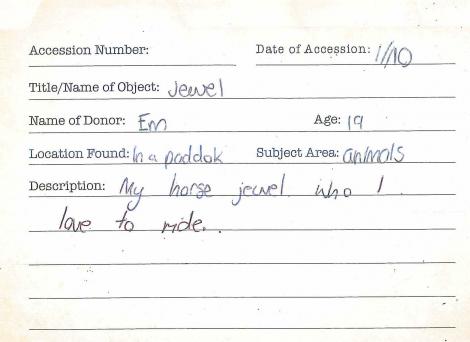 Accession Number:
Date of Accession: 1/10
Title/Name of Object: Jewel
Name of Donor: Em
Age: 19
Location Found: In a paddok
Subject Area: animals
Description: My horse jewel who I
love to ride.